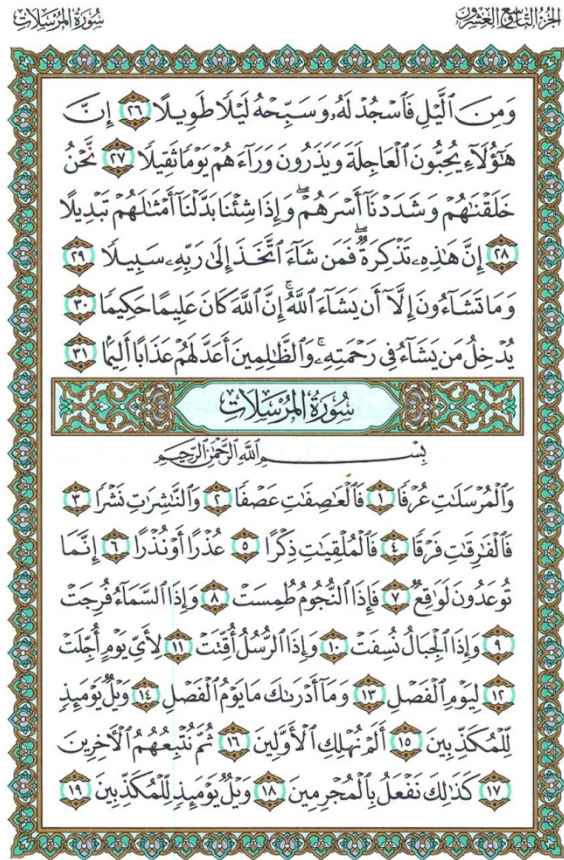 سُورَةُ المُرْسَلَاتِ
الجُزْءُ التَّاسِعُ وَالعِشْرُونَ
وَمِنَ ٱلَّيۡلِ فَٱسۡجُدۡ لَهُۥ وَسَبِّحۡهُ لَيۡلٗا طَوِيلًا ٢٦ إِنَّ
هَٰٓؤُلَآءِ يُحِبُّونَ ٱلۡعَاجِلَةَ وَيَذَرُونَ وَرَآءَهُمۡ يَوۡمٗا ثَقِيلٗا ٢٧ نَّحۡنُ
خَلَقۡنَٰهُمۡ وَشَدَدۡنَآ أَسۡرَهُمۡۖ وَإِذَا شِئۡنَا بَدَّلۡنَآ أَمۡثَٰلَهُمۡ تَبۡدِيلًا
٢٨ إِنَّ هَٰذِهِۦ تَذۡكِرَةٞۖ فَمَن شَآءَ ٱتَّخَذَ إِلَىٰ رَبِّهِۦ سَبِيلٗا ٢٩
وَمَا تَشَآءُونَ إِلَّآ أَن يَشَآءَ ٱللَّهُۚ إِنَّ ٱللَّهَ كَانَ عَلِيمًا حَكِيمٗا ٣٠
يُدۡخِلُ مَن يَشَآءُ فِي رَحۡمَتِهِۦۚ وَٱلظَّٰلِمِينَ أَعَدَّ لَهُمۡ عَذَابًا أَلِيمَۢا ٣١
سُورَةُ المُرْسَلَاتِ
بِسۡمِ ٱللَّهِ ٱلرَّحۡمَٰنِ ٱلرَّحِيمِ
وَٱلۡمُرۡسَلَٰتِ عُرۡفٗا ١ فَٱلۡعَٰصِفَٰتِ عَصۡفٗا ٢ وَٱلنَّٰشِرَٰتِ نَشۡرٗا ٣
فَٱلۡفَٰرِقَٰتِ فَرۡقٗا ٤ فَٱلۡمُلۡقِيَٰتِ ذِكۡرًا ٥ عُذۡرًا أَوۡ نُذۡرًا ٦ إِنَّمَا
تُوعَدُونَ لَوَٰقِعٞ ٧ فَإِذَا ٱلنُّجُومُ طُمِسَتۡ ٨ وَإِذَا ٱلسَّمَآءُ فُرِجَتۡ
٩ وَإِذَا ٱلۡجِبَالُ نُسِفَتۡ ١٠ وَإِذَا ٱلرُّسُلُ أُقِّتَتۡ ١١ لِأَيِّ يَوۡمٍ أُجِّلَتۡ
١٢ لِيَوۡمِ ٱلۡفَصۡلِ ١٣ وَمَآ أَدۡرَىٰكَ مَا يَوۡمُ ٱلۡفَصۡلِ ١٤ وَيۡلٞ يَوۡمَئِذٖ
لِّلۡمُكَذِّبِينَ ١٥ أَلَمۡ نُهۡلِكِ ٱلۡأَوَّلِينَ ١٦ ثُمَّ نُتۡبِعُهُمُ ٱلۡأٓخِرِينَ
١٧ كَذَٰلِكَ نَفۡعَلُ بِٱلۡمُجۡرِمِينَ ١٨ وَيۡلٞ يَوۡمَئِذٖ لِّلۡمُكَذِّبِينَ ١٩